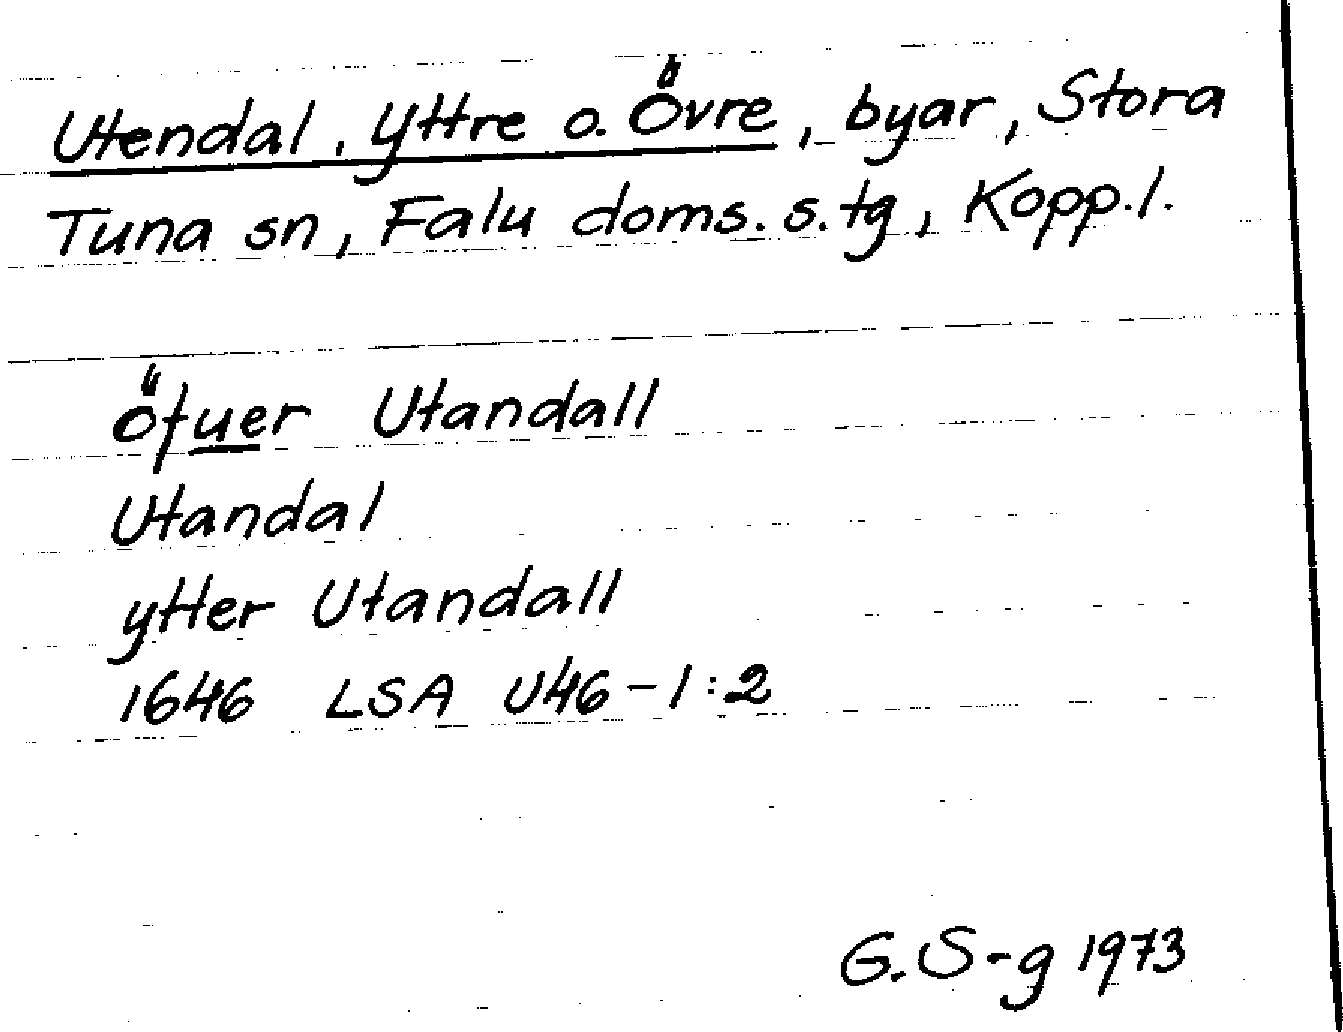 Utendal, Yttre o. Övre, byar, Stora
Tuna sn, Falu doms. s. tg, Kopp. l.
öfuer Utandall
Utandal
ytter Utandall
1646 LSA U46-1:2
G. S-g 1973